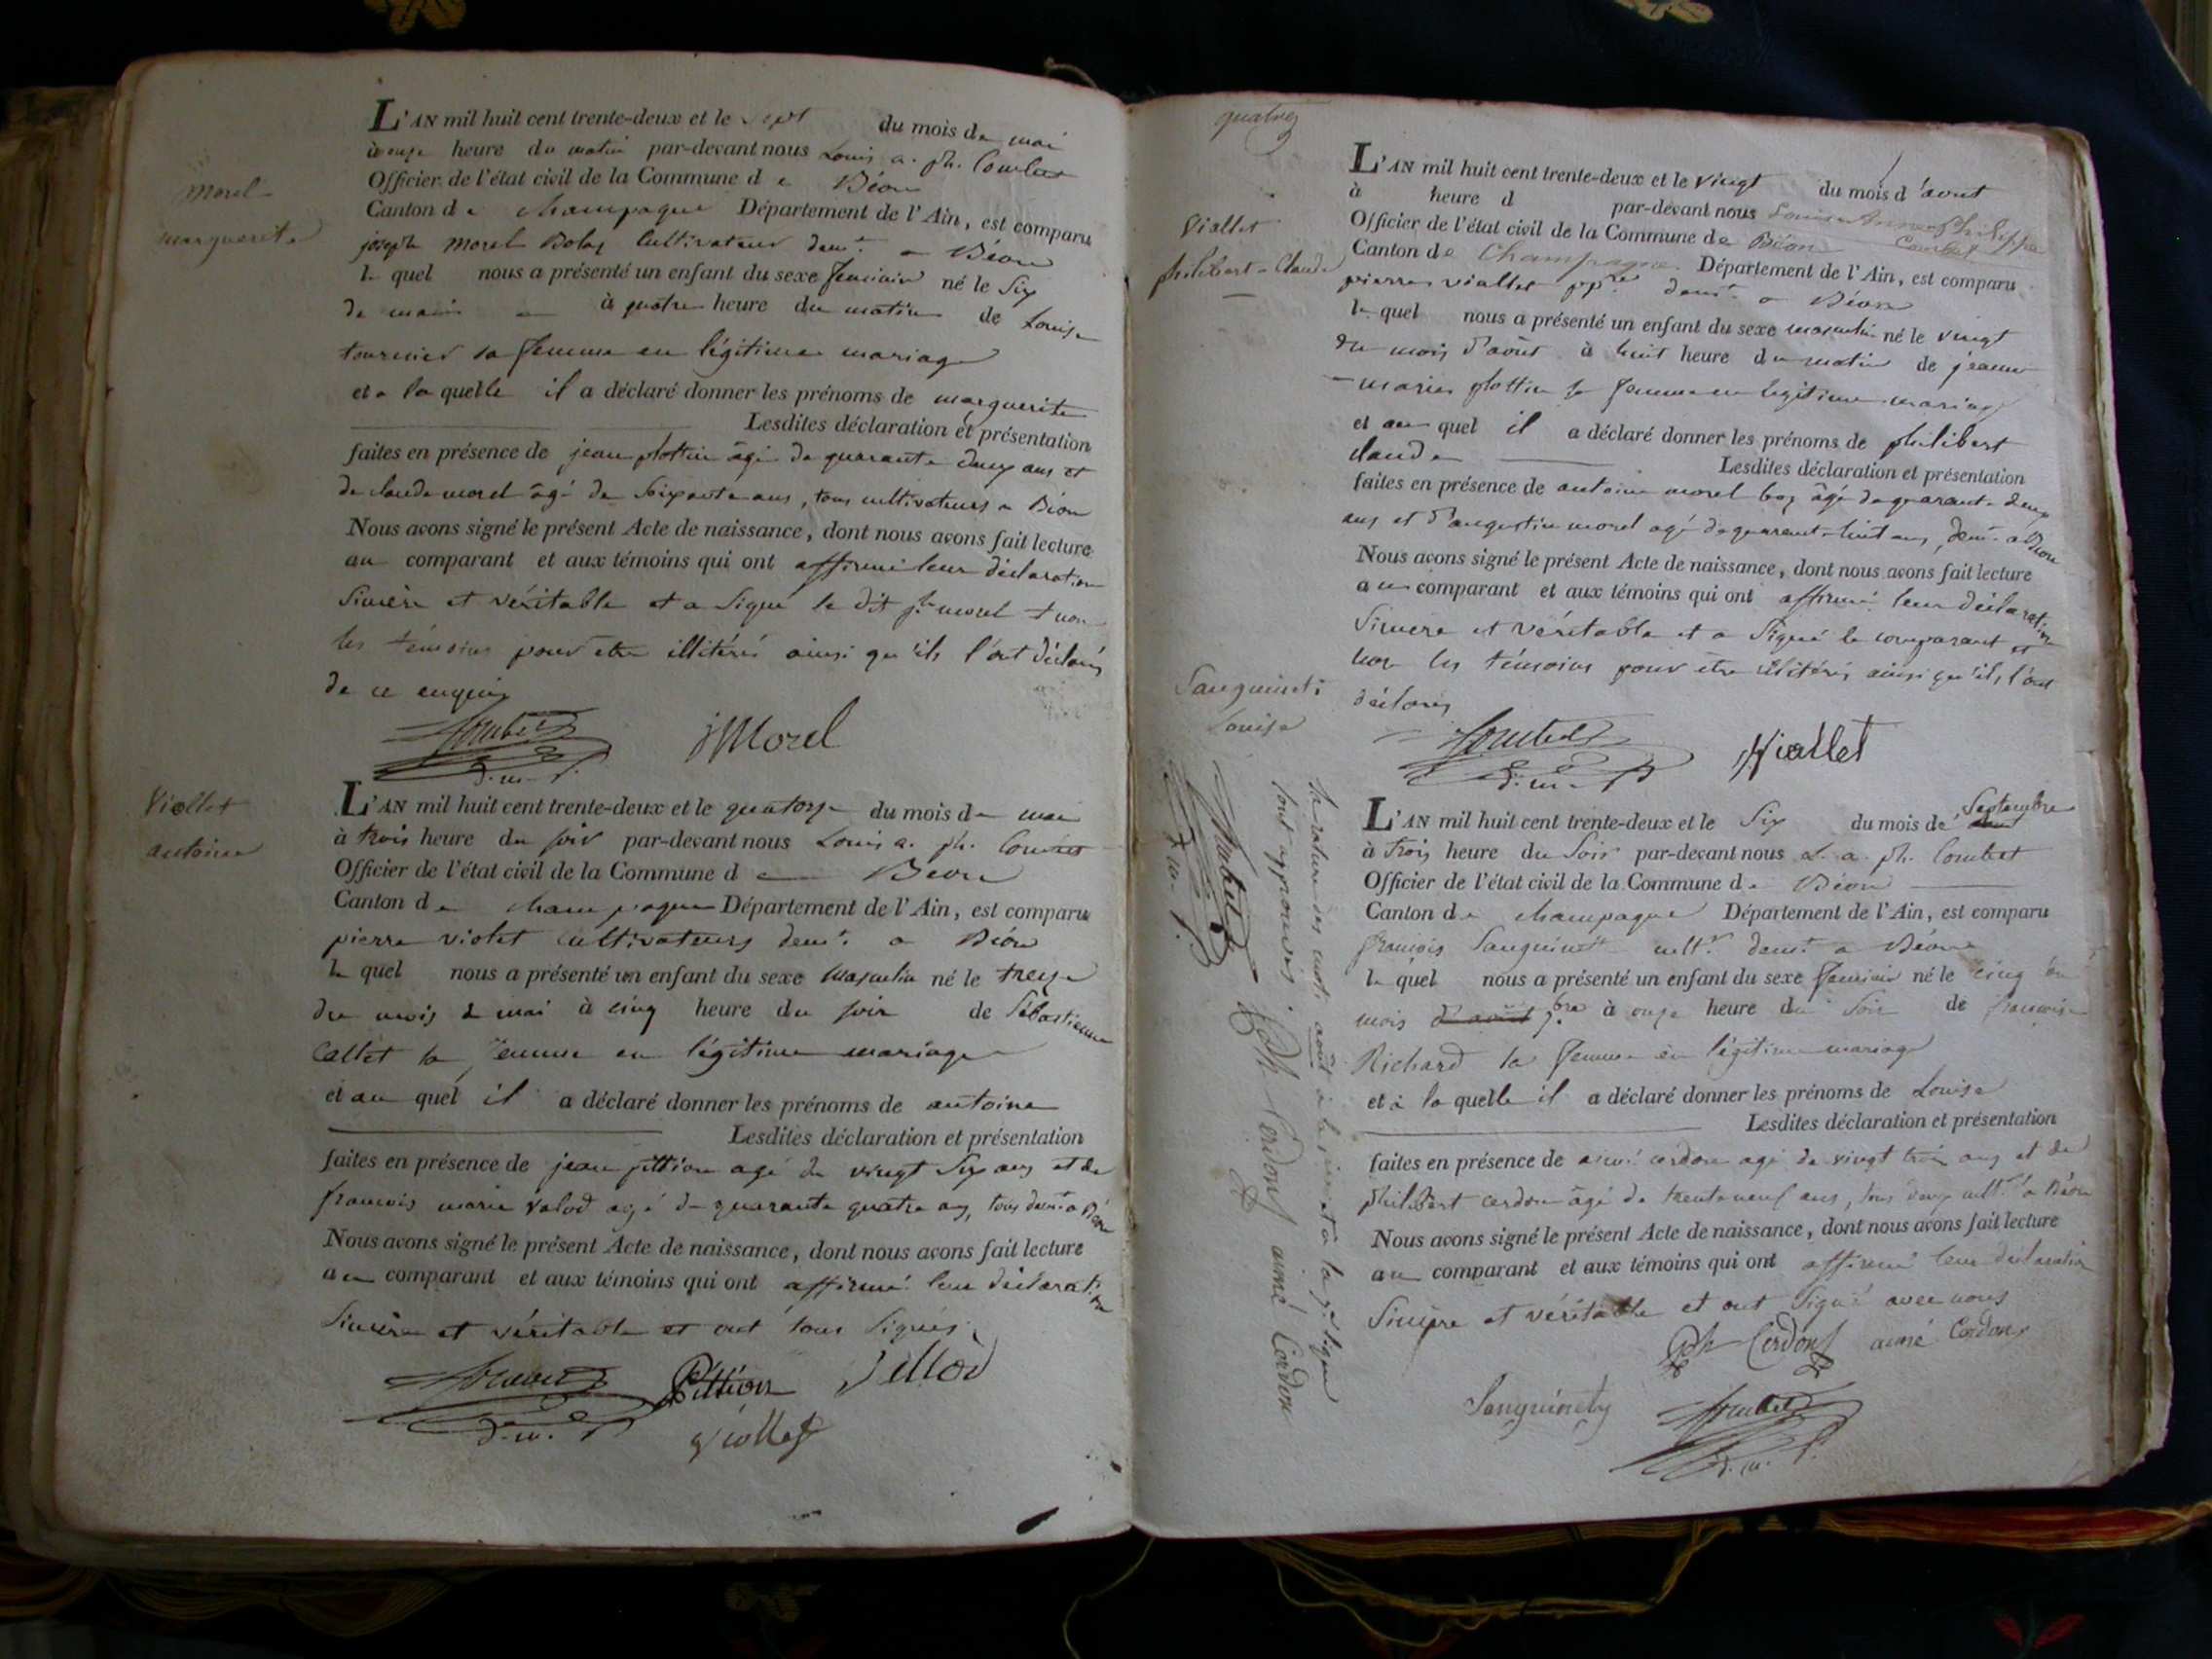 Morel
marguerite
L'AN mil huit cent trente-deux et le sept du mois de mai
à onze heure du matin par-devant nous Louis a. ph. Combet
Officier de l'état civil de la Commune de Béon
Canton de champagne Département de l'Ain, est comparu
joseph Morel Bolas Cultivateur demt. a Béon
le quel nous a présenté un enfant du sexe feminin né le Six
de mai à quatre heure du matin de Louise
tournier sa femme en légitime mariage
et a la quelle il a déclaré donner les prénoms de marguerite
Lesdites déclaration et présentation
faites en présence de jean plottin âgé de quarante deux ans et
de claude morel âgé de soixante ans, tous cultivateurs a Béon
Nous avons signé le présent Acte de naissance, dont nous avons fait lecture
au comparant et aux témoins qui ont affirmé leur déclaration
Sincère et véritable et a Signé le dit jh morel & non
les témoins pour etre illitérés ainsi qu'ils l'ont déclarés
de ce enquis
Combet
d. m. f.
jMorel
Viollet
antoine
L'AN mil huit cent trente-deux et le quatorze du mois de mai
à trois heure du soir par-devant nous Louis a. ph. Combet
Officier de l'état civil de la Commune de Béon
Canton de champagne Département de l'Ain, est comparu
pierre violet cultivateurs demt. a Béon
le quel nous a présenté un enfant du sexe masculin né le treize
du mois de mai à cinq heure du soir de Sébastienne
Callet sa femme en légitime mariage
et au quel il a déclaré donner les prénoms de antoine
Lesdites déclaration et présentation
faites en présence de jean pittion agé de vingt Six ans et de
francois marie valod agé de quarante quatre ans, tous demt. a Béon
Nous avons signé le présent Acte de naissance, dont nous avons fait lecture
au comparant et aux témoins qui ont affirmé leur déclaration
Sincère et véritable et ont tous Signés.
Combet
d. m. f.
Pittion
Viollet
quatre
Viallet
philibert-Claude
L'AN mil huit cent trente-deux et le vingt du mois d'aout
à heure d par-devant nous Louis Anne Philippe Combet
Officier de l'état civil de la Commune de Béon
Canton de Champagne Département de l'Ain, est comparu
pierre viallet ppre demt. a Béon
le quel nous a présenté un enfant du sexe masculin né le vingt
du mois d'août à huit heure du matin de jeanne
marie plottin sa femme en legitime mariage
et au quel il a déclaré donner les prénoms de philibert
claude Lesdites déclaration et présentation
faites en présence de antoine morel boz âgé de quarante deux
ans et d'augustin morel agé de quarante huit ans, demt. a Béon
Nous avons signé le présent Acte de naissance, dont nous avons fait lecture
au comparant et aux témoins qui ont affirmé leur déclaration
Sincere et véritable et a Signé le comparant et
non les témoins pour être illitérés ainsi qu'ils l'ont
déclarés
Combet
d. m. f.
Viallet
Sanguinet
Louise
L'AN mil huit cent trente-deux et le Six du mois de aout Septembre
à trois heure du Soir par-devant nous L. a. ph. Combet
Officier de l'état civil de la Commune de Béon
Canton de champagne Département de l'Ain, est comparu
françois Sanguinet cultr. demt. a Béon
le quel nous a présenté un enfant du sexe feminin né le cinq du
mois d'août 7bre à onze heure du Soir de francoise
Richard sa femme en légitime mariage
et à la quelle il a déclaré donner les prénoms de Louise
Lesdites déclaration et présentation
faites en présence de aimé cordon agé de vingt trois ans et de
philibert cordon âgé de trente neuf ans, tous deux cultr. a Béon
Nous avons signé le présent Acte de naissance, dont nous avons fait lecture
au comparant et aux témoins qui ont affirmé leur declaration
Sincère et véritable et ont Signé avec nous
Ph Cerdon aimé Cordon
Sanguinety
Combet
d. m. f.
la rature des mots août à la 1ere et à la 7e ligne
sont approuvés.
Combet
d. m. f.
Ph Cerdon aimé Cordon